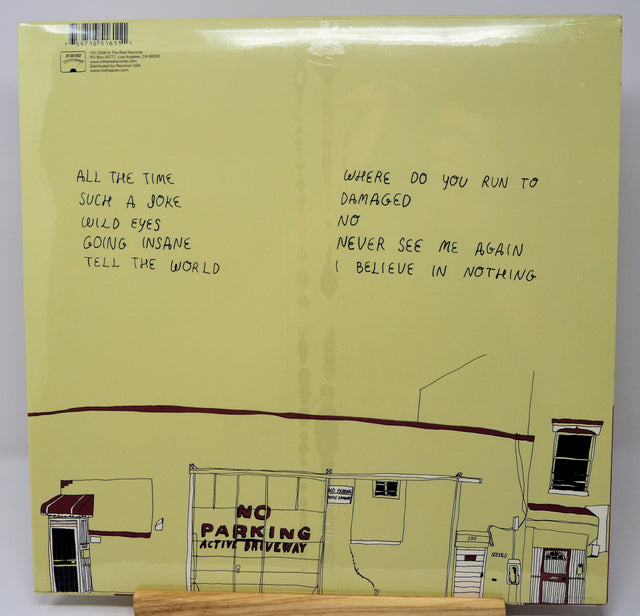 7 59718 51631 1
IN THE RED
2008 In The Red Records
PO Box 50777, Los Angeles, CA 90050
www.intheredrecords.com
Distributed by Revolver USA
www.midheaven.com
ALL THE TIME
SUCH A JOKE
WILD EYES
GOING INSANE
TELL THE WORLD
WHERE DO YOU RUN TO
DAMAGED
NO
NEVER SEE ME AGAIN
I BELIEVE IN NOTHING
NO
PARKING
ACTIVE DRIVEWAY
NO PARKING
330